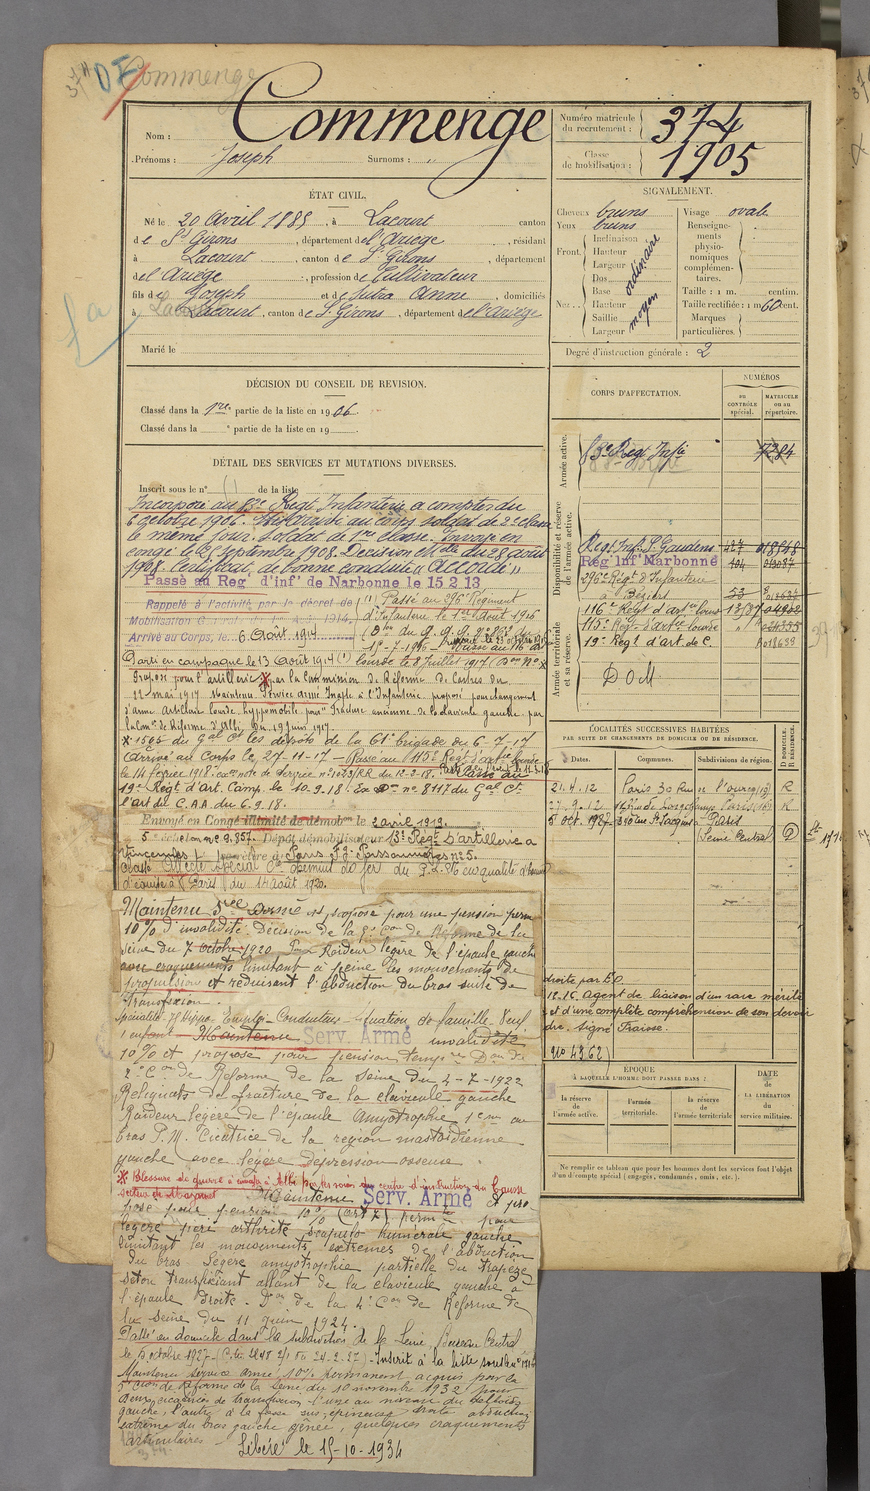 Commenge
Nom : Commenge
Prénoms : Joseph Surnoms : "
Numéro matricule du recrutement : 374
Classe de mobilisation : 1905
ÉTAT CIVIL.
Né le 20 Avril 1885, à Lacourt canton
de St Girons, département de l'Ariège, résidant
à Lacourt, canton de St Girons, département
de l'Ariège, profession de Cultivateur
fils de Joseph et de Sutra Anne, domiciliés
à Lacourt, canton de St Girons, département de l'Ariège
Marié le
DÉCISION DU CONSEIL DE REVISION.
Classé dans la 1re partie de la liste en 1906.
Classé dans la e partie de la liste en 19
DÉTAIL DES SERVICES ET MUTATIONS DIVERSES.
Inscrit sous le n° de la liste
Incorporé au 83e Regt Infanterie à compter du
6 octobre 1906. au corps soldat de 2e classe
le même jour. Soldat de 1re classe. Envoyé en
congé le 25 Septembre 1908. Décision Mlle du 28 août
1908. Certificat de bonne conduite « Accordé »
Passé au Reg' d'inf' de Narbonne le 15.2.13
Rappelé à l'activité par le décret de
Arrivé au Corps, le 6 Août 1914
(1) Passé au 296e Régiment
d'Infanterie le
Parti en campagne le 13 Août 1914 (1) lourde le 8 Juillet 1917
Proposé pour l'artillerie par la Commission de Réforme de Castres du
22 mai 1917 Maintenu Service armé Inapte à l'Infanterie proposé pour changement
d'arme Artillerie lourde hippomobile pour "fracture ancienne de la clavicule gauche" par
la Con de Réforme d'Albi du 19 juin 1917
1595 du Gal Ct les dépôts de la 61e brigade du 6-7-17
Arrivé au Corps le 27-11-17 – Passé au 115e Régt d'artie lourde
le 14 février 1918.
19e Régt d'Art. Camp. le 10.9.18. En Don n° 8118 du Gal Ct
l'art du C.A.A. du 6.9.18.
Envoyé en Congé illimité de démobon le 2 avril 1919.
5e échelon n° 9.857. Dépôt démobilisateur 13e Régt D'artillerie à
Vincennes se retire à Paris Fg Poissonnière n° 5.
à Paris du 14 août 1920.
Maintenu Sce Armé et proposé pour une pension perm
10% d'invalidité. Décision de la Con de Réforme de la
Seine du 7 octobre 1920. Pour Raideur légère de l'épaule gauche
avec craquements limitant à peine les mouvements de
propulsion et réduisant l'abduction du bras suite de
transfixion.
Emploi – Conducteur – Situation de famille. Veuf
1 enfant – Maintenu Serv. Armé invalidité
10% et proposé pour pension tempre Don de
2e Con de Réforme de la Seine du 4-7-1922
Reliquats de fracture de la clavicule gauche
Raideur légère de l'épaule Amyotrophie 1 cm au
bras P.M. Cicatrice de la région mastoïdienne
gauche avec légère dépression osseuse.
Maintenu Serv. Armé et pro-
posé pour pension 10% (art 7) permte pour
légère péri arthrite scapulo humérale gauche
limitant les mouvements extrêmes de l'abduction
du bras. Légère amyotrophie partielle du trapèze
séton transfixiant allant de la clavicule gauche à
l'épaule droite. Don de la 4e Con de Réforme de
la Seine du 11 juin 1924.
Passé en domicile dans la subdivision de la Seine, Bureau Central
le 5 octobre 1927
Maintenu service armé, 10% permanent acquis par la
5e Con de Réforme de la Seine, du 10 novembre 1932, pour
Deux cicatrices de transfixion l'une au niveau du deltoïde
gauche, l'autre à la fosse sus-épineuse droite abduction
extrême du bras gauche gênée, quelques craquements
articulaires.
Libéré le 15-10-1934
SIGNALEMENT.
Cheveux bruns
Yeux bruns
Front. Inclinaison Hauteur Largeur ordinaire
Nez. Dos Base Hauteur Saillie Largeur moyen
Visage ovale
Renseignements physionomiques complémentaires :
Taille : 1 m. centim.
Taille rectifiée : 1 m 60 cent.
Marques particulières.
Degré d'instruction générale : 2
CORPS D'AFFECTATION.
NUMÉROS
AU CONTRÔLE spécial.
MATRICULE ou au répertoire.
Armée active.
83e Regt Infie 7384
Disponibilité et réserve de l'armée active.
Regt Inf. St Gaudens 427
Reg Inf Narbonne 404
296e Régt d'Infanterie
à Béziers 53
116e Régt d'artie lourde
115e Régt d'artie lourde
19e Regt d'art. de C.
Armée territoriale et sa réserve.
DOM.
LOCALITÉS SUCCESSIVES HABITÉES
PAR SUITE DE CHANGEMENTS DE DOMICILE OU DE RÉSIDENCE.
Dates. Communes. Subdivisions de région. D DOMICILE. R RÉSIDENCE.
21.4.12 Paris 30 Rue de l'Ourcq (19) R
27.9.12 Paris (16) R
5 oct. 1927 Paris
(Seine Central) D
droite par E.O.
12-16. Agent de liaison d'un rare mérite
et d'une complète compréhension de son devoir
ÉPOQUE
À LAQUELLE L'HOMME DOIT PASSER DANS :
la réserve de l'armée active.
l'armée territoriale.
la réserve de l'armée territoriale
DATE de LA LIBÉRATION du service militaire.
Ne remplir ce tableau que pour les hommes dont les services font l'objet
d'un compte spécial (engagés, condamnés, omis, etc.).